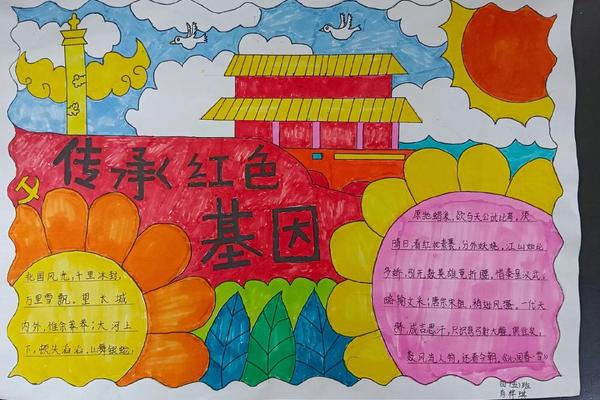 传承红色
基因
北国风光,千里冰封,
万里雪飘。望长城
内外,惟余莽莽;大河上
下,顿失滔滔。山舞银蛇,
原驰蜡象,欲与天公试比高,须
晴日,看红装素裹,分外妖娆,江山如此
多娇,引无数英雄竞折腰。惜秦皇汉武,
略输文采;唐宗宋祖,稍逊风骚。一代天
骄,成吉思汗,只识弯弓射大雕。俱往矣,
数风流人物,还看今朝。《沁园春·雪》
四(五)班